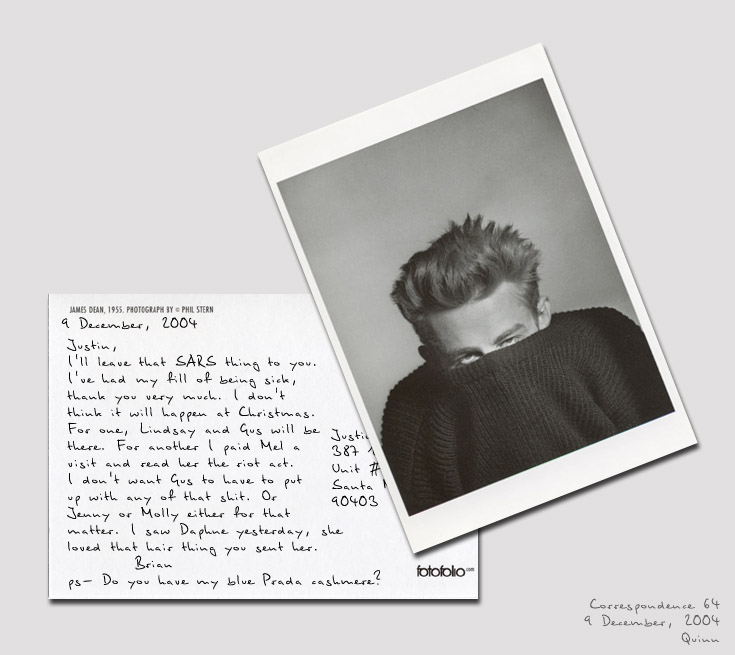 JAMES DEAN, 1955. PHOTOGRAPH BY © PHIL STERN
9 December, 2004
Justin,
I'll leave that SARS thing to you.
I've had my fill of being sick,
thank you very much. I don't
think it will happen at Christmas.
For one, Lindsay and Gus will be
there. For another I paid Mel a
visit and read her the riot act.
I don't want Gus to have to put
up with any of that shit. Or
Jenny or Molly either for that
matter. I saw Daphne yesterday, she
loved that hair thing you sent her.
Brian
ps- Do you have my blue Prada cashmere?
Justin
387
Unit #
Santa
90403
fotofolio.com
Correspondence 64
9 December, 2004
Quinn